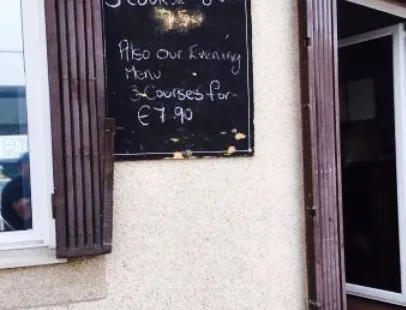 3 Course
7.50
Also Our Evening
Menu
3 Courses for
€7.90